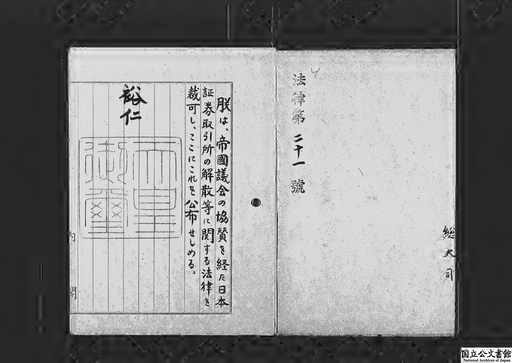 法律第二十一號
総 大 司
朕は、帝國議会の協賛を経た日本
証券取引所の解散等に関する法律を
裁可し、ここにこれを公布せしめる。
裕仁
天皇
御璽
内閣
国立公文書館
National Archives of Japan